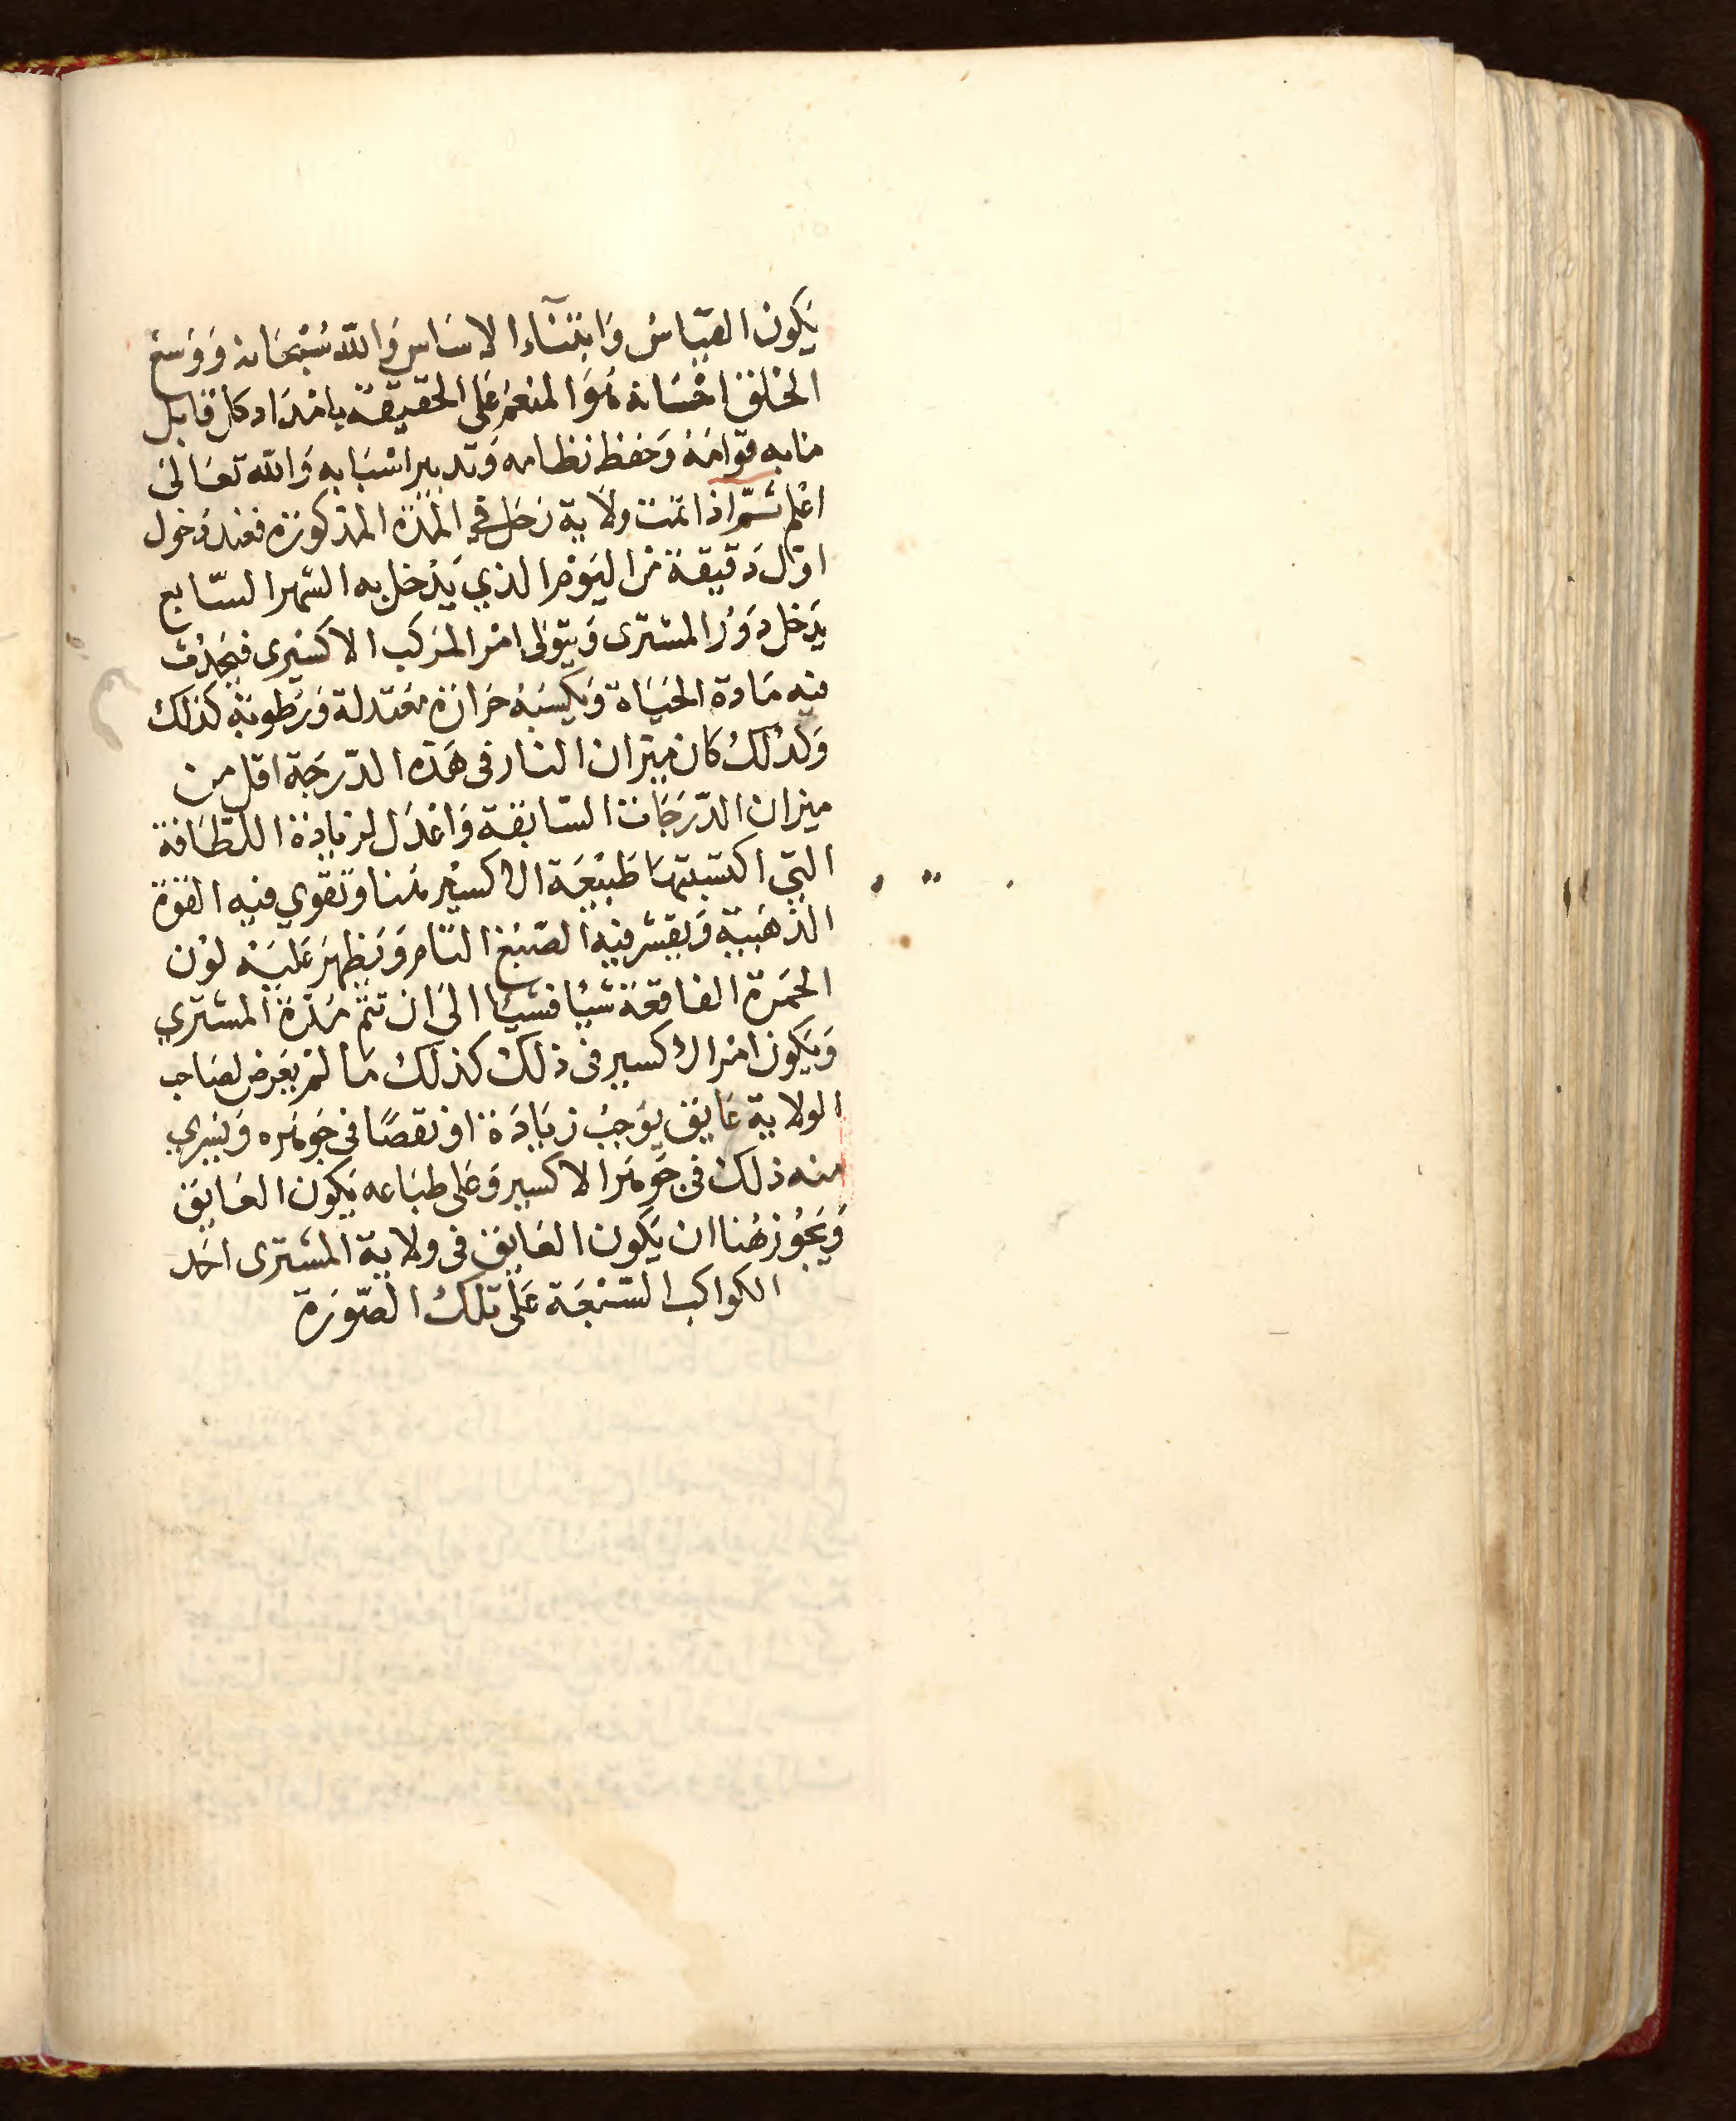 يَكون القيَاسُ وَابتنَاء الاسَاس وَالله سُبْحَانه وَوَسعَ
الخلقَ احْسَانه هُوَ المنعمُ عَلى الحقيقة بامْدَاد كل قابل
منا به قوامَهُ وَحفظ نظامه وَتدبير اسْبَابه وَالله تعَالىَ
اعْلم ثمّ اذا تمت ولاية زحَل في المدّة المذكورَة فعند دُخول
اوّل دَقيقة مْن اليَوْم الذي يَدْخل به الشهر السّابع
يَدخل دَوْرُ المشترى وَيتولى امْر المرَكب الاكسْيرى فيحْدث
فيه مَادة الحيَاة وَيكسبَهُ حرَارَة معْتدلة وَرُطوبة كذلك
وَلذلكُ كان ميزان النار فى هَذه الدّرجَة اقل من
ميزان الدّرَجَات السّابقة وَاعْدَل لزيادَة اللطَافة
التي اكتسبتهَا طبيْعَة الاكسيْر هُنا وَتقوي فيه القوّة
الذهَبية وَيقشر فيه الصّبغ التام وَيَظهرَ عَليْه لوْن
الحمَرة الفاقعَة شيئا فشيئا الىَ ان تتمّ مُدّة المشتري
وَيَكون امْر الاكسير فى ذلك كذلكُ مَا لمْ يعَرض لصَاحب
الولاية عَايق يوَجبُ زيَادَة اوْ نقصًا فى جَوهَره وَيسْري
منه ذلك فى جَوهَر الاكسير وَعَلى طبَاعه يَكون العَايق
وَيَجُوز هُنا ان يَكون العَايق فى ولاية المشترى احَد
الكواكب السّبْعَة عَلى تلكُ الصّورَة